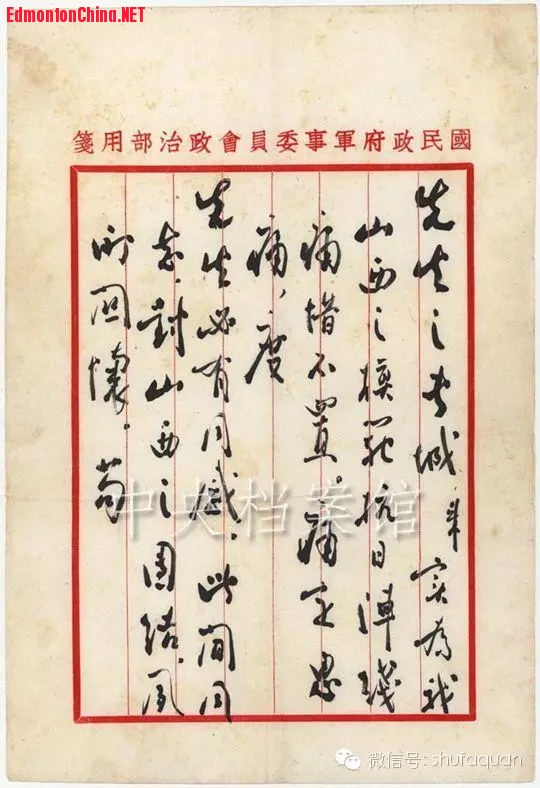 EdmontonChina.NET
國民政府軍事委員會政治部用箋
先生之城實為我
山西之模範抗日陣綫
痛惜不置。痛定思
痛,度
先生必有同感,此間同
志,對山西之團結,夙
所関懷。苟
中央档案馆
微信号: shufaquan